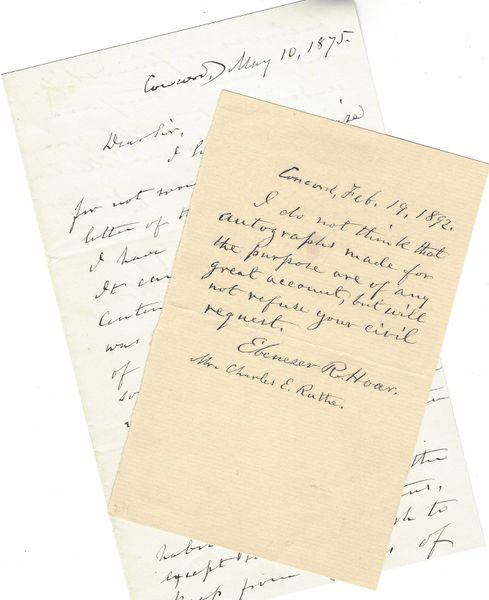 Concord, May 10, 1875.
Dear Sir,
for not
letter of
I have
It
was
of
the
except
from
of
Concord, Feb. 19, 1892.
I do not think that
autographs made for
the purpose are of any
great account, but will
not refuse your civil
request.
Ebenezer R. Hoar.
Mr. Charles E. Ruthe.